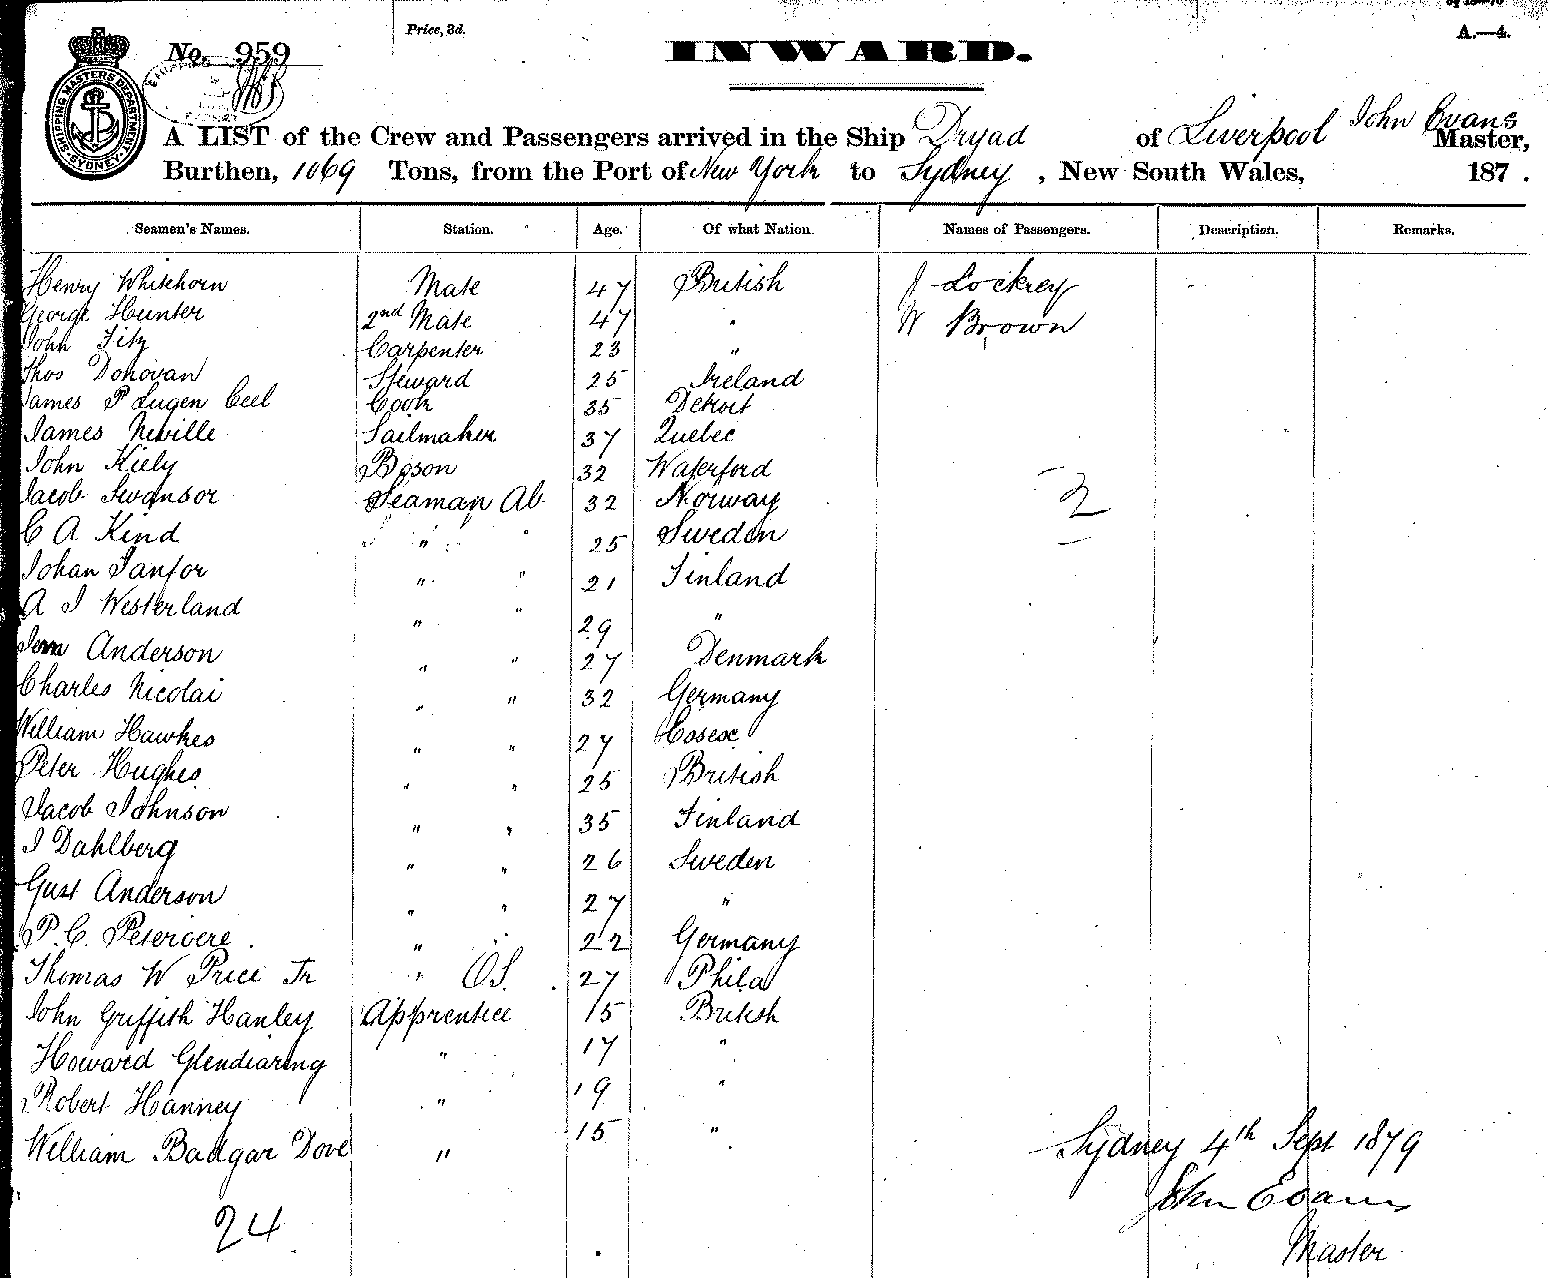 Price, 3d.
A.—4.
No. 959
INWARD.
SHIPPING MASTERS DEPARTMENT SYDNEY
A LIST of the Crew and Passengers arrived in the Ship Dryad of Liverpool John Evans Master,
Burthen, 1069 Tons, from the Port of New York to Sydney, New South Wales, 187 .
Seamen's Names. Station. Age. Of what Nation. Names of Passengers. Description. Remarks.
Henry Whitehorn Mate 47 British J Lockrey
George Hunter 2nd Mate 47 " W Brown
John Fitz Carpenter 23 "
Thos Donovan Steward 25 Ireland
James P Lugen Ceel Cook 35 Detroit
James Neville Sailmaker 37 Quebec
John Kiely Boson 32 Waterford
Jacob Swansor Seaman Ab 32 Norway 2
C A Kind " " 25 Sweden
Johan Janfor " " 21 Finland
A J Westerland " " 29 "
Anderson " " 27 Denmark
Charles Nicolai " " 32 Germany
William Hawkes " " 27
Peter Hughes " " 25 British
Jacob Johnson " " 35 Finland
J Dahlberg " " 26 Sweden
Gust Anderson " " 27 "
P. C. " " 22 Germany
Thomas W Price Jr " OS. 27 Phila
John Griffith Hanley Apprentice 15 British
Howard Glendiaring " 17 "
Robert Hanney " 19 "
William Badgar Dove " 15 "
Sydney 4th Sept 1879
John Evans
Master
24